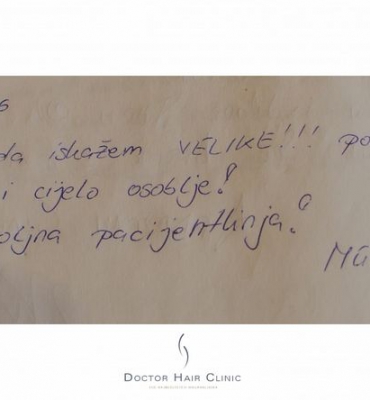 da iskažem VELIKE!!!
i cijelo osoblje!
pacijentlinja!
DOCTOR HAIR CLINIC